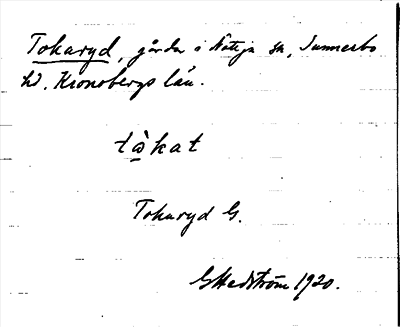 Tokaryd, gårdar i Nöttja sn, Sunnerbo
hd, Kronobergs län.
tåkat
Tokaryd G.
G Hedström 1920.